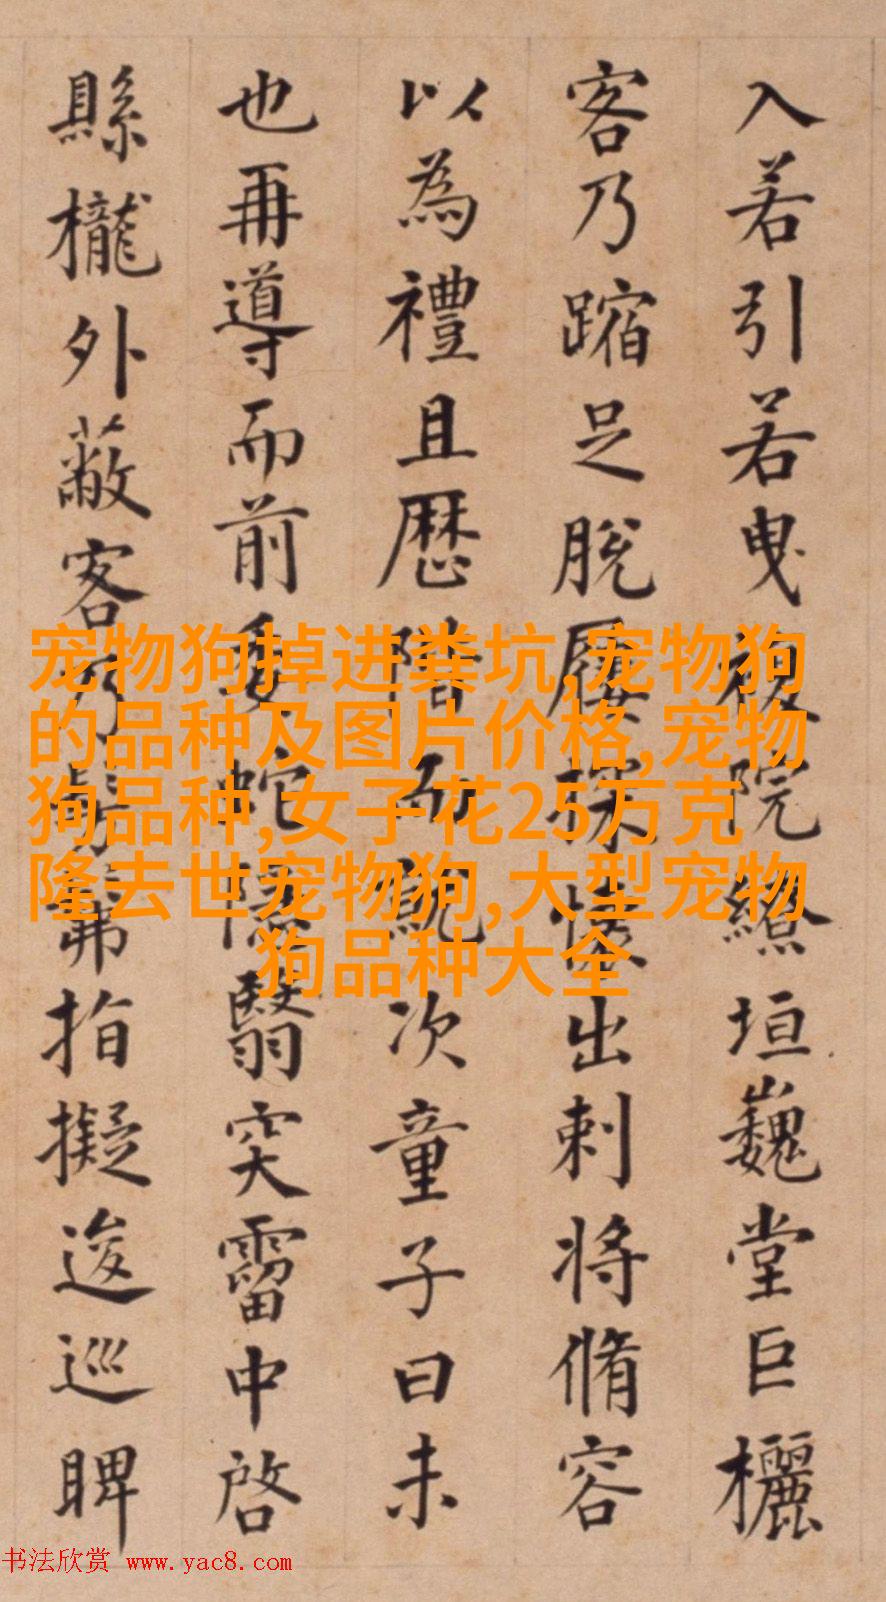 入若引若曳複院繚垣巍堂巨欐
客乃蹜足脫屨探懷出刺將脩容
以為禮且歷階而就次童子曰未
也再導而前委蛇隱翳突霤中啓
縣櫳外蔽客乃髣髴指擬逡巡睥
宠物狗掉进粪坑,宠物狗
的品种及图片价格,宠物
狗品种,女子花25万克
隆去世宠物狗,大型宠物
狗品种大全
书法欣赏 www.yac8.com